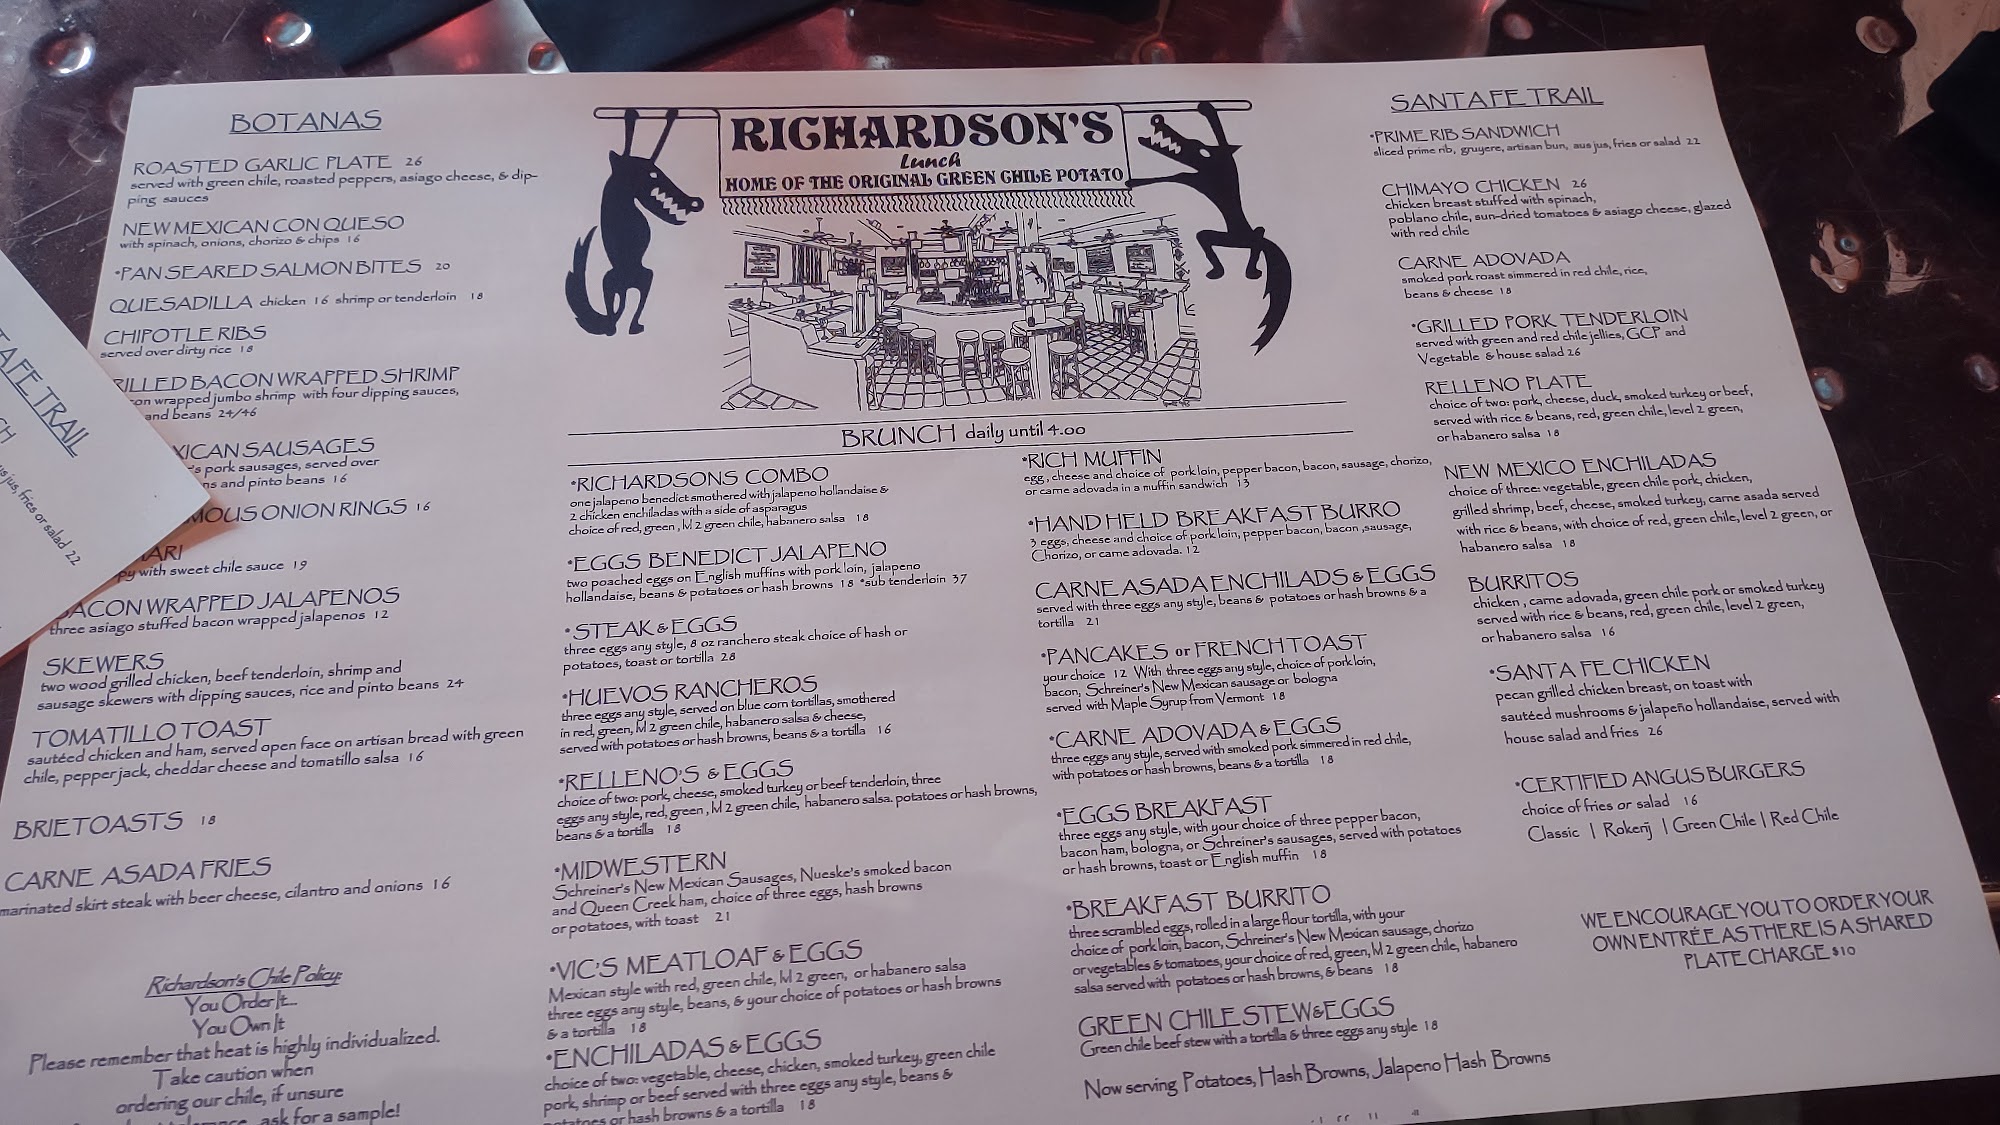 BOTANAS
ROASTED GARLIC PLATE 26
served with green chile, roasted peppers, asiago cheese, & dip-
ping sauces
NEW MEXICAN CON QUESO
with spinach, onions, chorizo & chips 16
*PAN SEARED SALMON BITES 20
QUESADILLA chicken 16 shrimp or tenderloin 18
CHIPOTLE RIBS
served over dirty rice 18
RILLED BACON WRAPPED SHRIMP
con wrapped jumbo shrimp with four dipping sauces,
and beans 24/46
XICAN SAUSAGES
's pork sausages, served over
ns and pinto beans 16
MOUS ONION RINGS 16
ARI
py with sweet chile sauce 19
BACON WRAPPED JALAPENOS
three asiago stuffed bacon wrapped jalapenos 12
SKEWERS
two wood grilled chicken, beef tenderloin, shrimp and
sausage skewers with dipping sauces, rice and pinto beans 24
TOMATILLO TOAST
sautéed chicken and ham, served open face on artisan bread with green
chile, pepper jack, cheddar cheese and tomatillo salsa 16
BRIE TOASTS 18
CARNE ASADA FRIES
marinated skirt steak with beer cheese, cilantro and onions 16
Richardson's Chile Policy:
You Order It...
You Own It
Please remember that heat is highly individualized.
Take caution when
ordering our chile, if unsure
ask for a sample!
AFE TRAIL
CH
us jus, fries or salad 22
RICHARDSON'S
Lunch
HOME OF THE ORIGINAL GREEN CHILE POTATO
BRUNCH daily until 4.00
*RICHARDSONS COMBO
one jalapeno benedict smothered with jalapeno hollandaise &
2 chicken enchiladas with a side of asparagus
choice of red, green, M 2 green chile, habanero salsa 18
*EGGS BENEDICT JALAPENO
two poached eggs on English muffins with pork loin, jalapeno
hollandaise, beans & potatoes or hash browns 18 *sub tenderloin 37
*STEAK & EGGS
three eggs any style, 8 oz ranchero steak choice of hash or
potatoes, toast or tortilla 28
*HUEVOS RANCHEROS
three eggs any style, served on blue corn tortillas, smothered
in red, green, M 2 green chile, habanero salsa & cheese,
served with potatoes or hash browns, beans & a tortilla 16
*RELLENO'S & EGGS
choice of two: pork, cheese, smoked turkey or beef tenderloin, three
eggs any style, red, green, M 2 green chile, habanero salsa. potatoes or hash browns,
beans & a tortilla 18
*MIDWESTERN
Schreiner's New Mexican Sausages, Nueske's smoked bacon
and Queen Creek ham, choice of three eggs, hash browns
or potatoes, with toast 21
*VIC'S MEATLOAF & EGGS
Mexican style with red, green chile, M 2 green, or habanero salsa
three eggs any style, beans, & your choice of potatoes or hash browns
& a tortilla 18
*ENCHILADAS & EGGS
choice of two: vegetable, cheese, chicken, smoked turkey, green chile
pork, shrimp or beef served with three eggs any style, beans &
potatoes or hash browns & a tortilla 18
*RICH MUFFIN
egg, cheese and choice of pork loin, pepper bacon, bacon, sausage, chorizo,
or carne adovada in a muffin sandwich 13
*HAND HELD BREAKFAST BURRO
3 eggs, cheese and choice of pork loin, pepper bacon, bacon, sausage,
Chorizo, or carne adovada. 12
CARNE ASADA ENCHILADS & EGGS
served with three eggs any style, beans & potatoes or hash browns & a
tortilla 21
*PANCAKES or FRENCH TOAST
your choice 12 With three eggs any style, choice of pork loin,
bacon, Schreiner's New Mexican sausage or bologna
served with Maple Syrup from Vermont 18
*CARNE ADOVADA & EGGS
three eggs any style, served with smoked pork simmered in red chile,
with potatoes or hash browns, beans & a tortilla 18
*EGGS BREAKFAST
three eggs any style, with your choice of three pepper bacon,
bacon ham, bologna, or Schreiner's sausages, served with potatoes
or hash browns, toast or English muffin 18
*BREAKFAST BURRITO
three scrambled eggs, rolled in a large flour tortilla, with your
choice of pork loin, bacon, Schreiner's New Mexican sausage, chorizo
or vegetables & tomatoes, your choice of red, green, M 2 green chile, habanero
salsa served with potatoes or hash browns, & beans 18
GREEN CHILE STEW & EGGS
Green chile beef stew with a tortilla & three eggs any style 18
Now serving Potatoes, Hash Browns, Jalapeno Hash Browns
SANTA FE TRAIL
*PRIME RIB SANDWICH
sliced prime rib, gruyere, artisan bun, aus jus, fries or salad 22
CHIMAYO CHICKEN 26
chicken breast stuffed with spinach,
poblano chile, sun-dried tomatoes & asiago cheese, glazed
with red chile
CARNE ADOVADA
smoked pork roast simmered in red chile, rice,
beans & cheese 18
*GRILLED PORK TENDERLOIN
served with green and red chile jellies, GCP and
Vegetable & house salad 26
RELLENO PLATE
choice of two: pork, cheese, duck, smoked turkey or beef,
served with rice & beans, red, green chile, level 2 green,
or habanero salsa 18
NEW MEXICO ENCHILADAS
choice of three: vegetable, green chile pork, chicken,
grilled shrimp, beef, cheese, smoked turkey, carne asada served
with rice & beans, with choice of red, green chile, level 2 green, or
habanero salsa 18
BURRITOS
chicken, carne adovada, green chile pork or smoked turkey
served with rice & beans, red, green chile, level 2 green,
or habanero salsa 16
*SANTA FE CHICKEN
pecan grilled chicken breast, on toast with
sautéed mushrooms & jalapeño hollandaise, served with
house salad and fries 26
*CERTIFIED ANGUS BURGERS
choice of fries or salad 16
Classic | Rokerij | Green Chile | Red Chile
WE ENCOURAGE YOU TO ORDER YOUR
OWN ENTRÉE AS THERE IS A SHARED
PLATE CHARGE $10